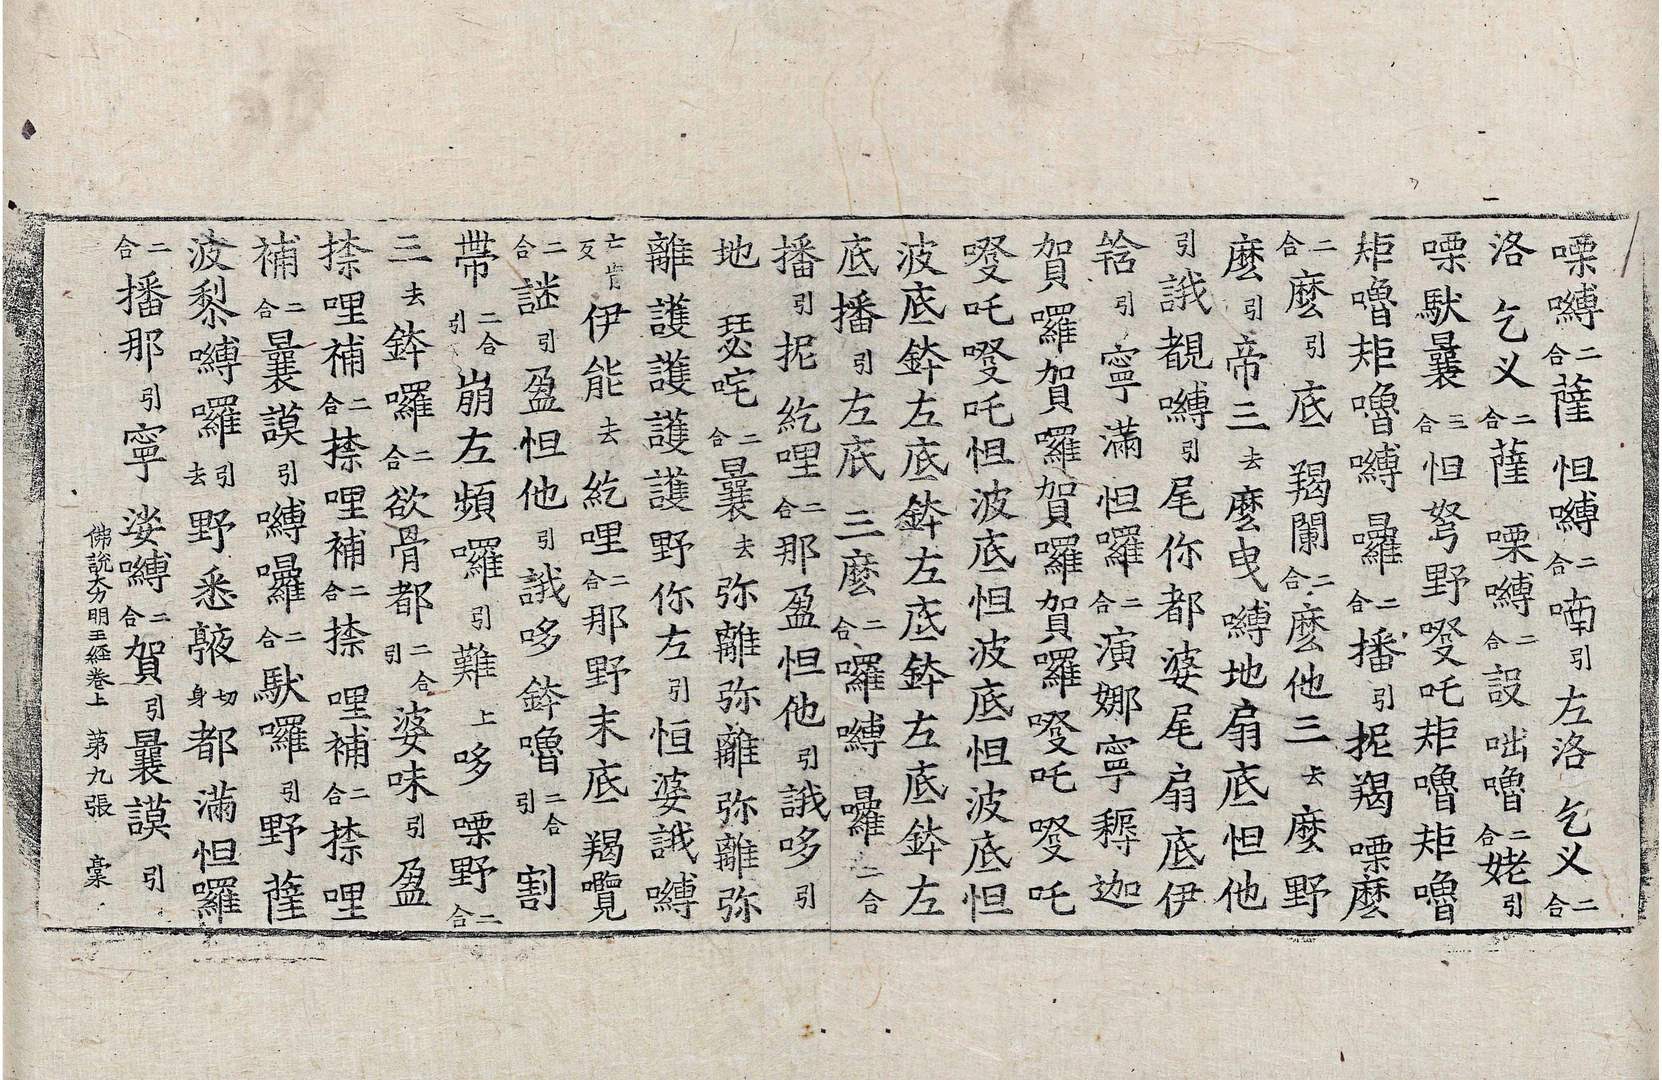 㗚嚩二合薩怛嚩二合喃引左洛乞义二合
洛乞义二合薩㗚嚩二合設咄嚕二合姥引
㗚馱曩三合怛弩野㗶吒矩嚕矩嚕
矩嚕矩嚕嚩曩囉二合播引抳羯㗚麽
二合麽引底羯闌二合麽他三去麽野
麽引帝三去麽曳嚩地扇底怛他
引誐覩嚩引尾你都婆尾扇底伊
引寧滿怛囉二合演娜寧迦
賀囉賀囉賀囉賀囉㗶吒㗶吒
㗶吒㗶吒怛波底怛波底怛波底怛
波底鉢左底鉢左底鉢左底鉢左
底播引左底三麽二合囉嚩囉二合
播引抳紇哩二合那盈怛他引誐哆引
地瑟咤二合曩去弥離弥離弥離弥
離護護護護野你左引恒婆誐嚩
亡肯反伊能去紇哩二合那野末底羯覽
二合謎引盈怛他引誐哆鉢嚕二合引割
帶二合引崩左頻囉引難上哆㗚野二合
三去鉢囉二合欲骨都二合引婆味引盈
捺哩補二合捺哩補二合捺哩補二合捺哩
補二合曩謨引嚩囉二合馱囉引野薩
波黎嚩囉引去野悉切身都滿怛囉
二合播那引寧娑嚩二合賀引曩謨引
佛說大方明王經卷上 第九張 稾